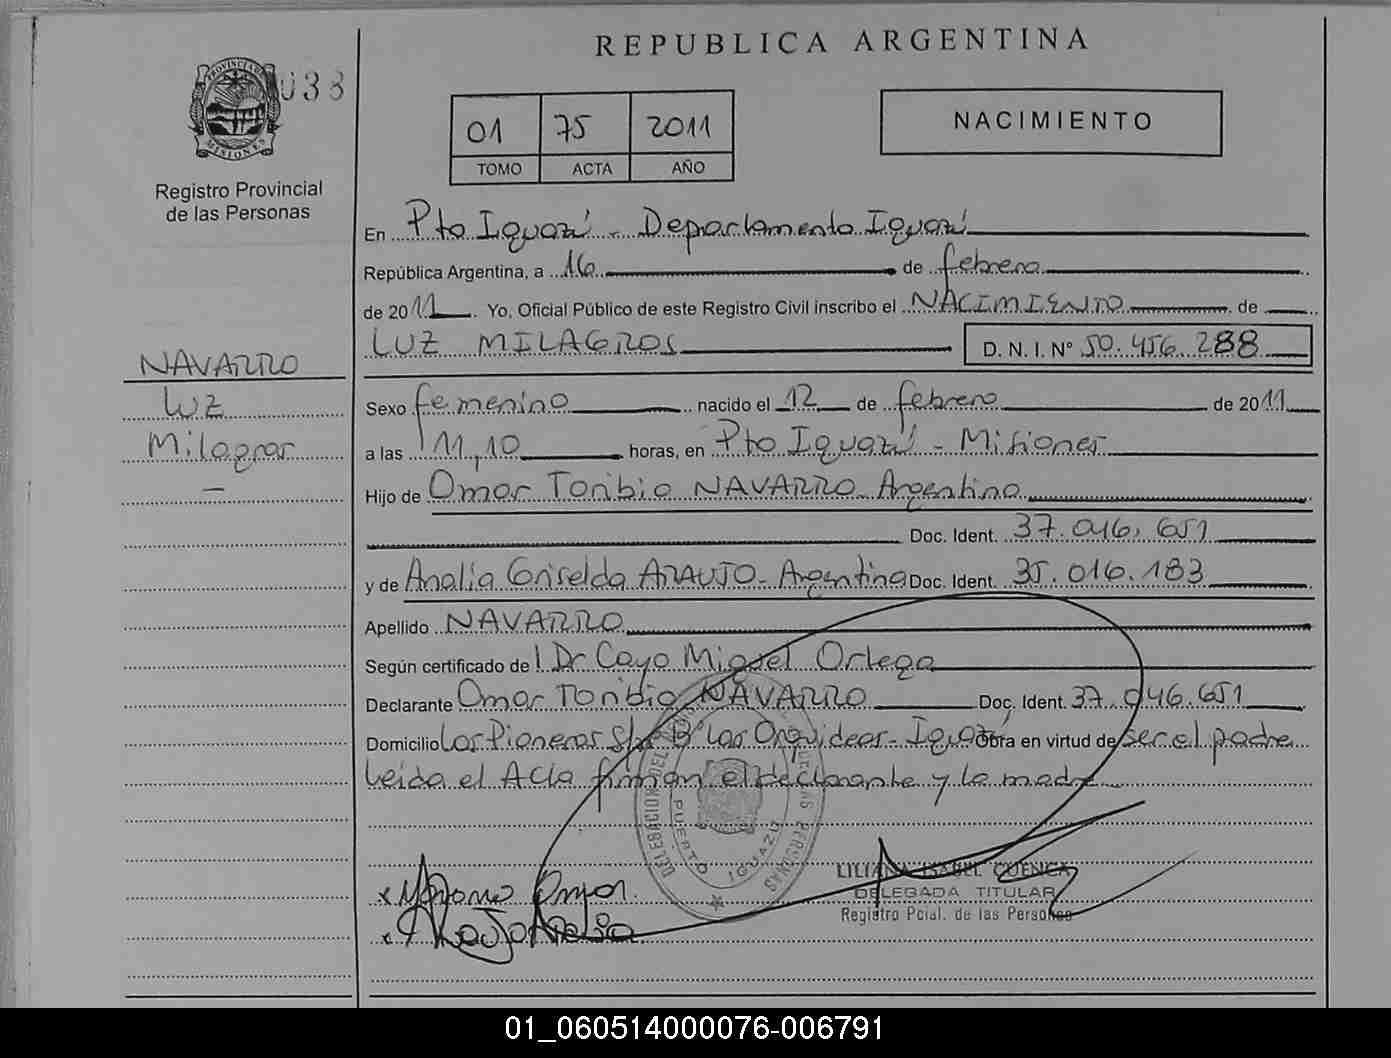 REPUBLICA ARGENTINA
PROVINCIA DE
MISIONES
038
Registro Provincial
de las Personas
01 75 2011
TOMO ACTA AÑO
NACIMIENTO
En Pto Iguazú - Departamento Iguazú
República Argentina, a 16 de febrero
de 2011. Yo, Oficial Público de este Registro Civil inscribo el NACIMIENTO de
LUZ MILAGROS D. N. I. Nº 50.456.288
NAVARRO
Luz
Milagros
—
Sexo femenino nacido el 12 de febrero de 2011
a las 11,10 horas, en Pto Iguazú - Misiones
Hijo de Omar Toribio NAVARRO - Argentino
Doc. Ident. 37.046.651
y de Analia Griselda ARAUJO - Argentina Doc. Ident. 35.016.183
Apellido NAVARRO
Según certificado del Dr Cayo Miguel Ortega
Declarante Omar Toribio NAVARRO Doc. Ident. 37.046.651
Domicilio Los Pioneros S/n Bº Las Orquideas - Iguazú Obra en virtud de ser el padre
Leida el Acta firman el declarante y la madre
DELEGACION DEL PERSONAS
PUERTO IGUAZU
x Omar
LILIANA ISABEL CUENCA
DELEGADA TITULAR
Registro Pcial. de las Personas
x Araujo Analia
01_060514000076-006791